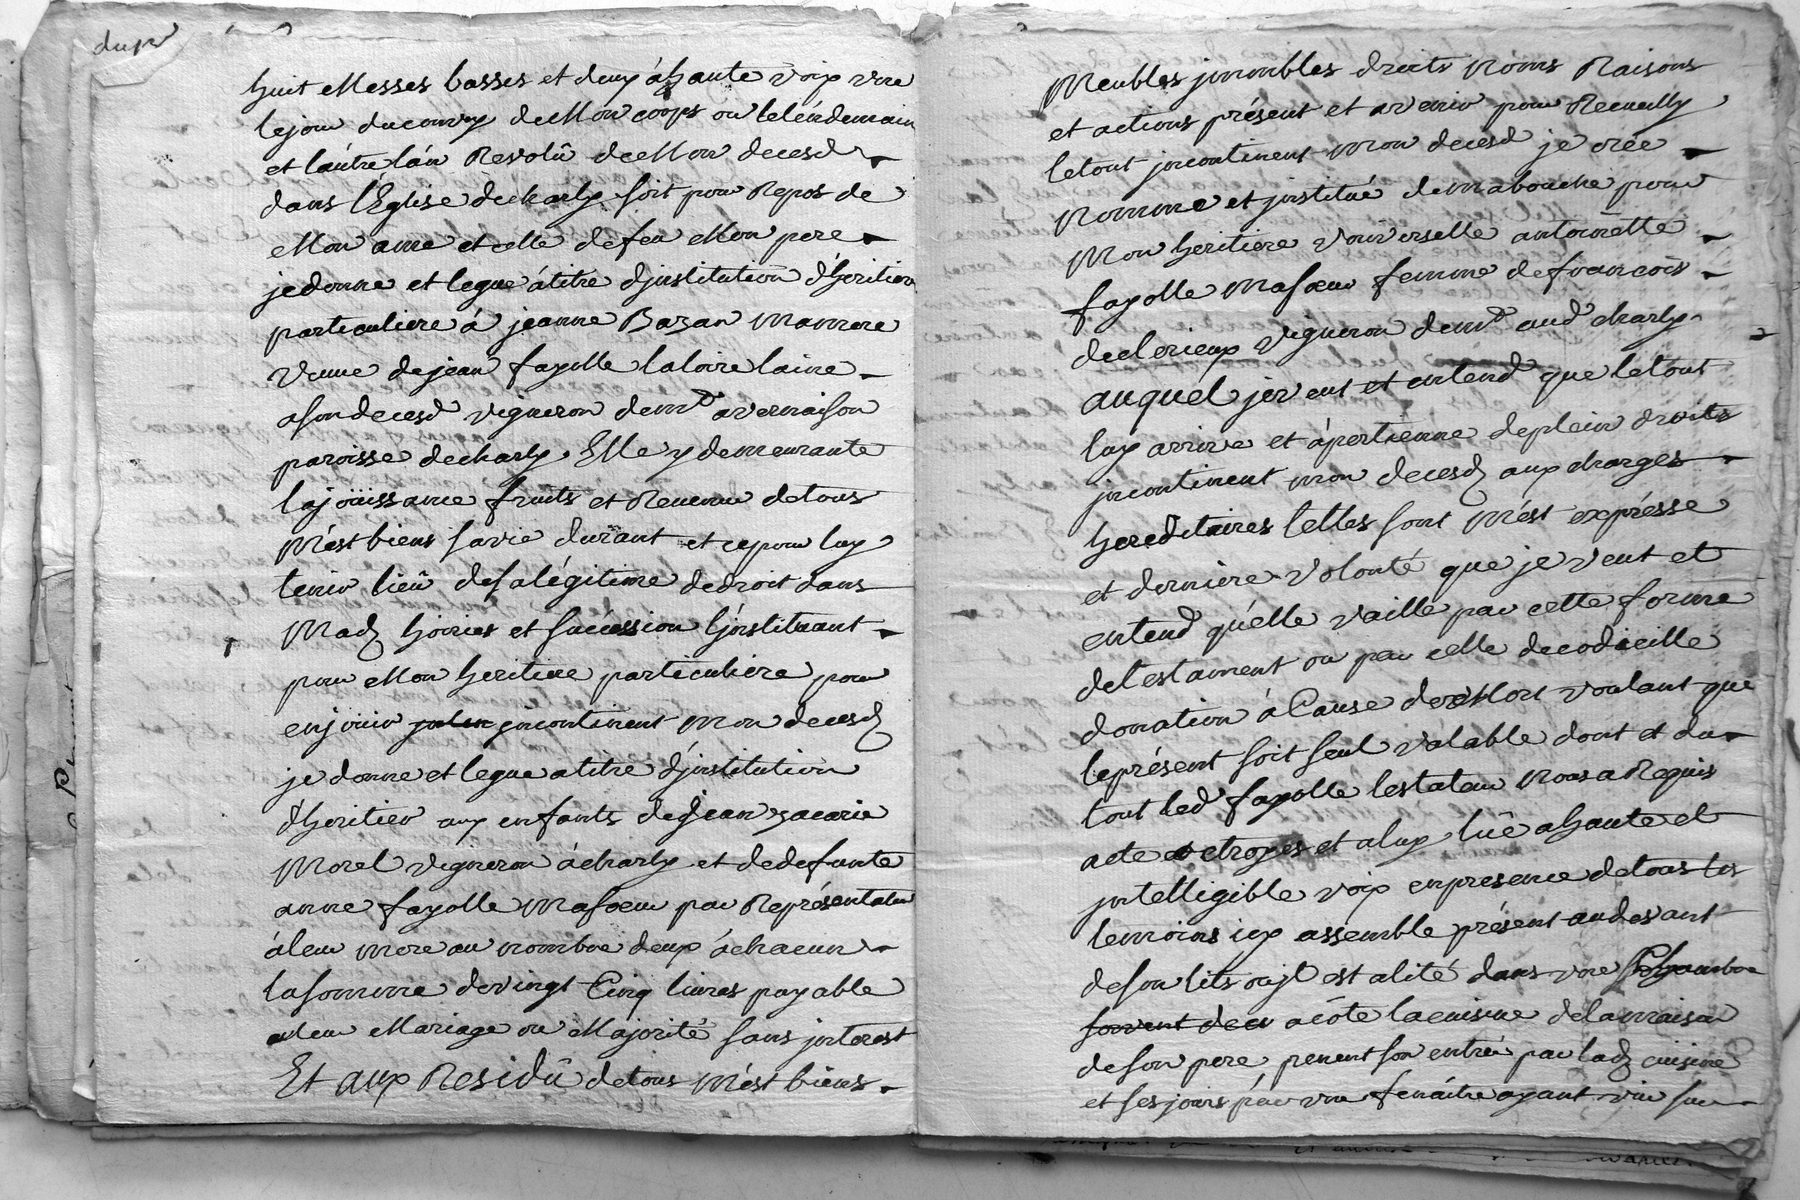 huit Messes basses et deux á haute voix une
le jour du convoy de Mon coops ou le léndemain
et láutre lán Revolû de Mon decesd
dans l'Eglise de charly soit pour Repos de
Mon ame et celle de feu Mon pere
je donne et legue átitre d'jnstitution d'heritiere
particuliere á jeanne Bazan ma mere
veuve de jean fayolle
a son decesd vigneron demt a vernaison
paroisse de charly Elle y demeurante
la joüissance fruits et Revenu de tous
mést biens sa vie durant et ce pour luy
tenir lieû de sa légitime de droit dans
Mad hoiries et succession l'jnstituant
pour Mon heritiere particuliere pour
en joüir jncontinent mon decesd
je donne et legue atitre d'jnstitution
d'heritier aux enfants de jean zacarie
Morel vigneron á charly et de defunte
anne fayolle ma soeur par Représentation
á leur mere au nombre deux á chacun
la somme de vingt Cinq livres payable
a leur Mariage ou Majorité sans jnterest
Et aux Residû de tous mést biens
Meubles jmmubles droits Noms Raisons
et actions présent et avenir pour Recueilly
le tout jncontinent mon decesd je crée
Nomme et jnstitué de ma bouche pour
Mon heritiere vniverselle antoinette
fayolle Ma soeur femme de francois
declerieux vigneron demt aud charly
auquel je veut et entend que le tout
luy arrive et ápertienne de plein droits
jncontinent mon decesd aux charges
hereditaires telles sont mést exprésse
et derniere volonté que je veut et
entend qu'élle vaille par cette forme
de testament ou par celle de codicille
donation á Cause de Mort voulant que
le présent soit seul valable dont et du
tout led fayolle testateur nous a Requis
acte octroyes et a luy lüe a haute et
jntelligible voix en presence de tous les
temoins icy assemble présent au devant
de son lits oujl est alité dans vne Chambre
a côte la cuisine de la maison
de son pere prenent son entrée par lad cuisine
et ses jours pár vne fenâitre ayant vüe sur